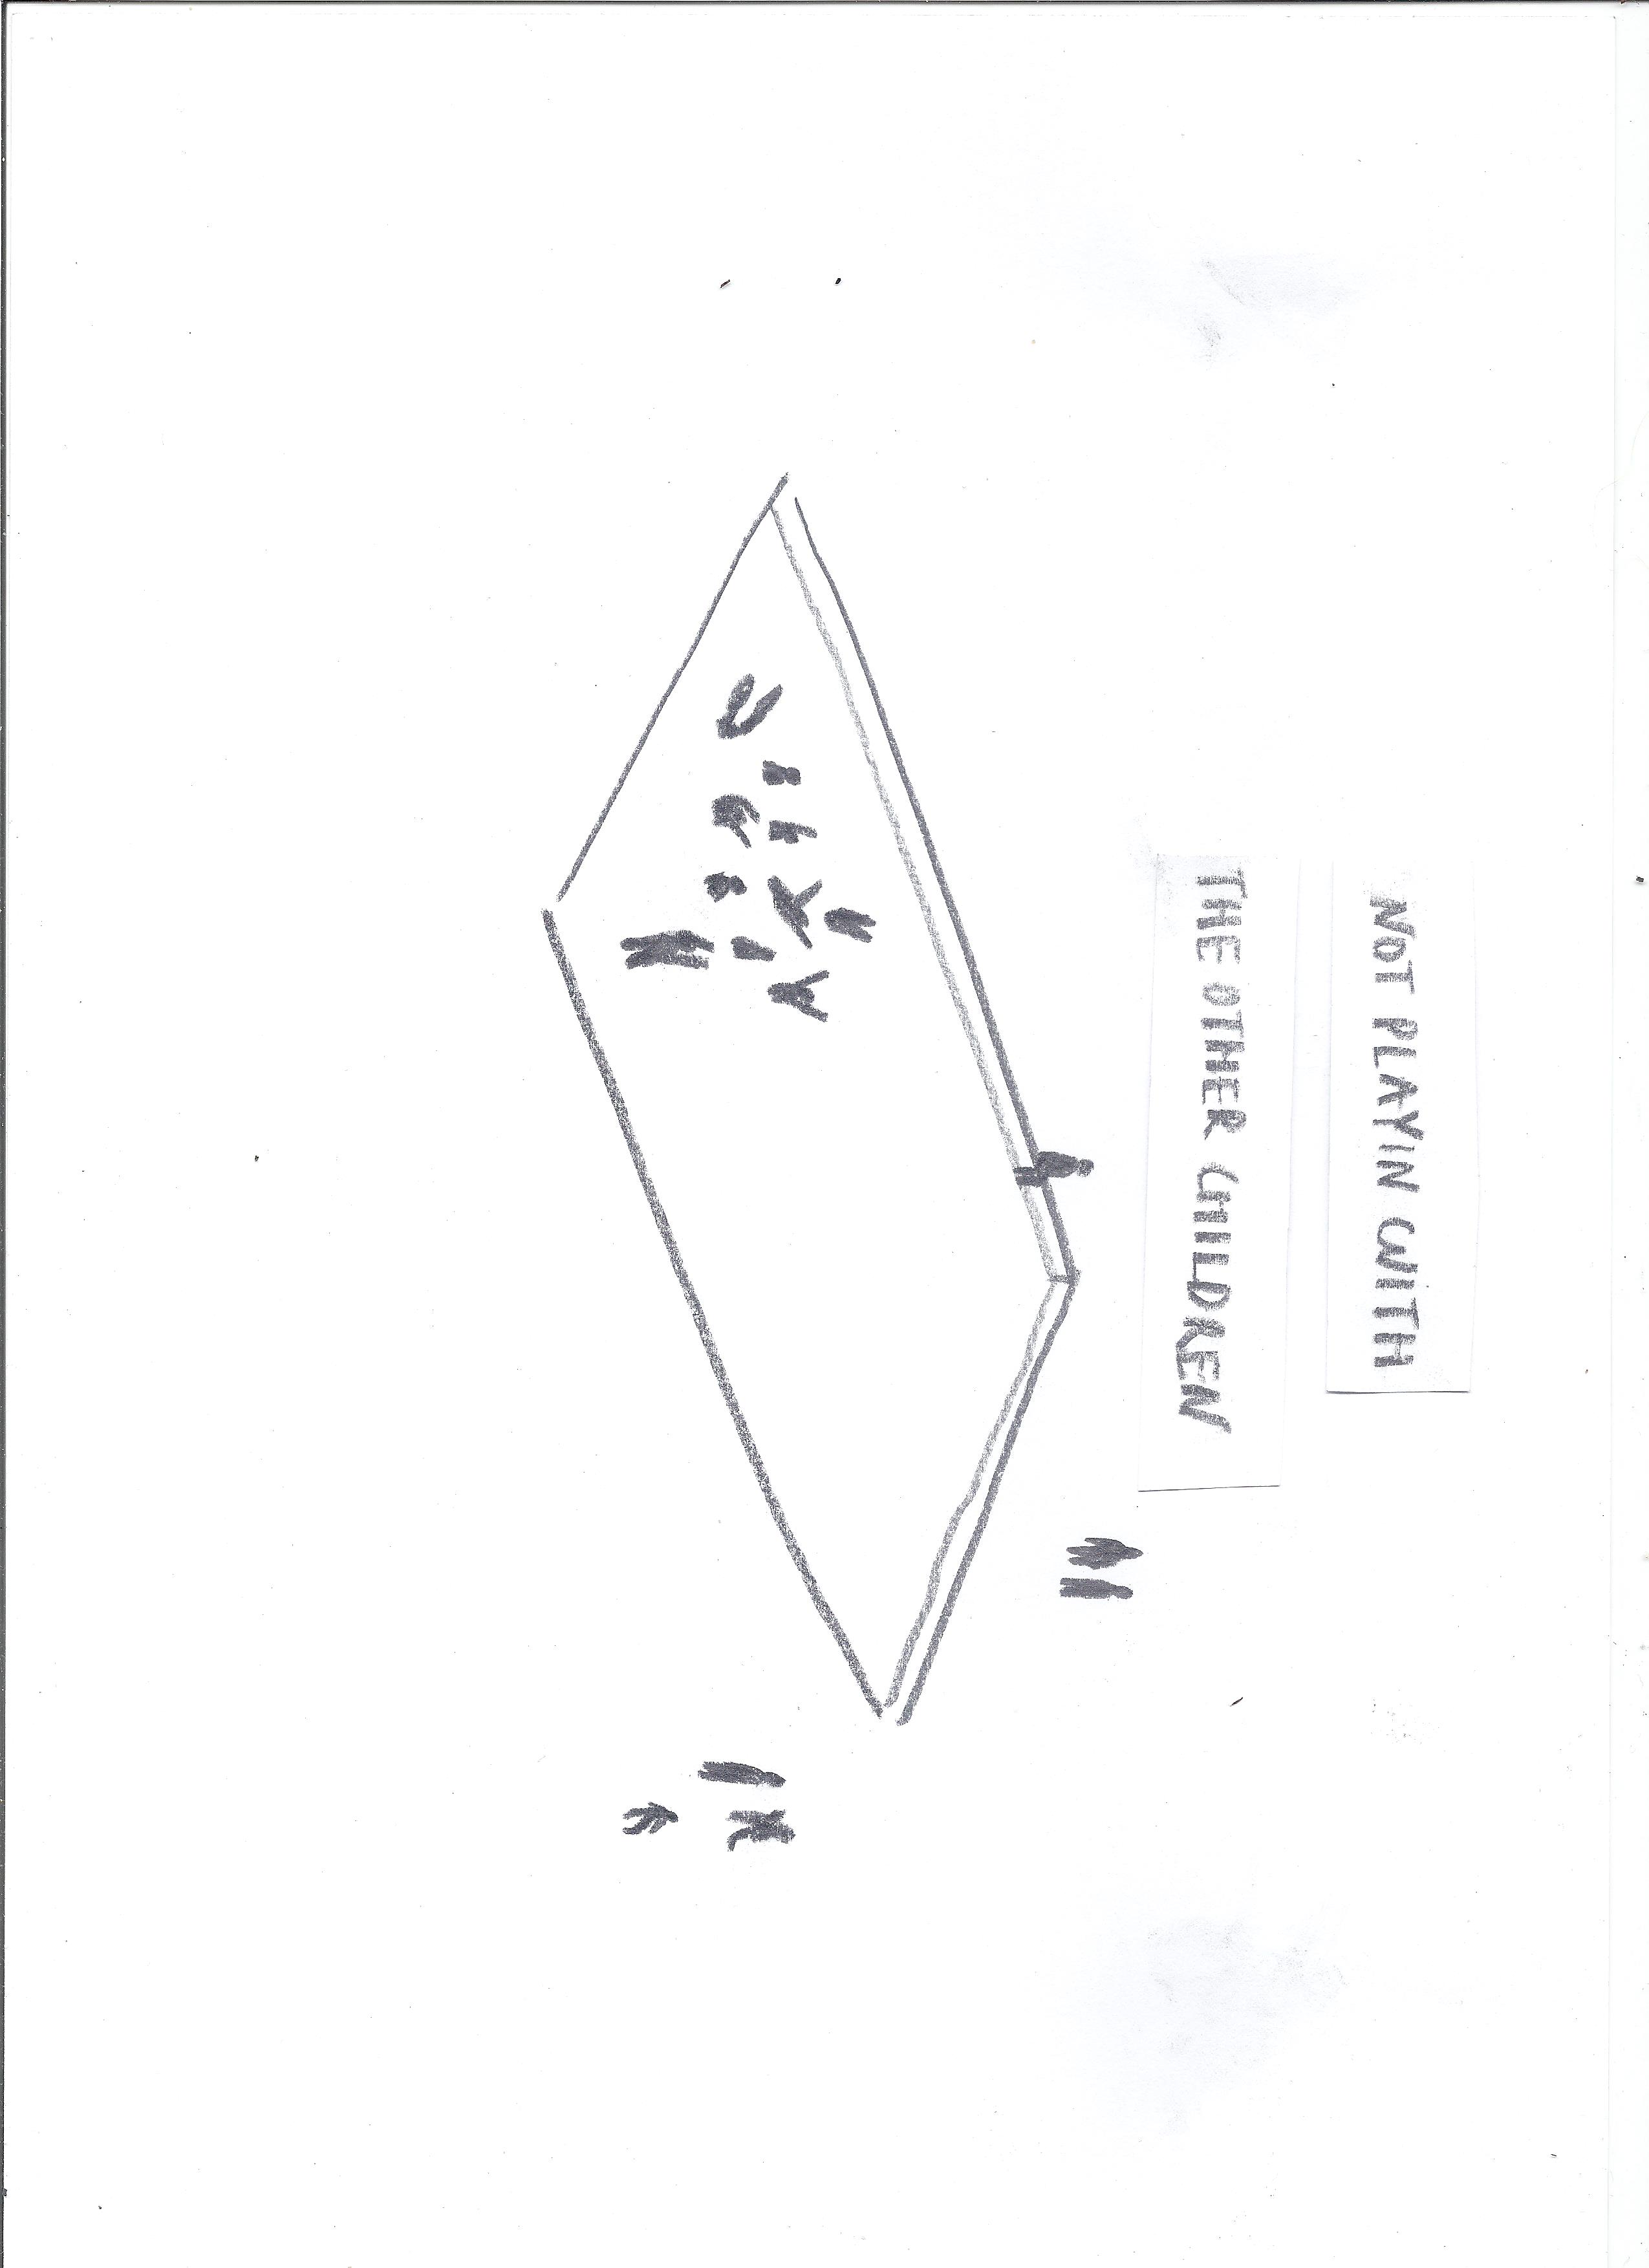 NOT PLAYIN WITH
THE OTHER CHILDREN